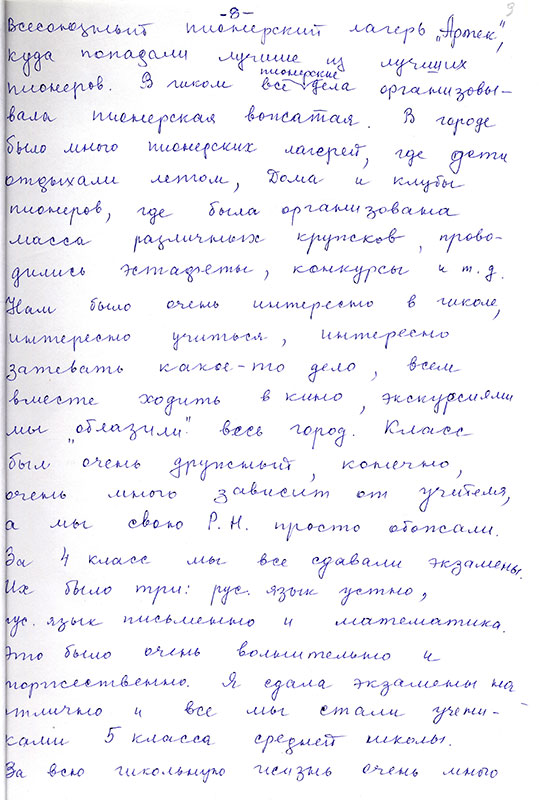 -8-
9
Всесоюзный пионерский лагерь „Артек",
куда попадали лучшие из лучших
пионеров. В школе все пионерские дела организовы-
вала пионерская вожатая. В городе
было много пионерских лагерей, где дети
отдыхали летом, Дома и клубы
пионеров, где была организована
масса различных кружков, прово-
дились эстафеты, конкурсы и т.д.
Нам было очень интересно в школе,
интересно учиться, интересно
затевать какое-то дело, всем
вместе ходить в кино, экскурсиями
мы "облазили" весь город. Класс
был очень дружный, конечно,
очень много зависит от учителя,
а мы свою Р.Н. просто обожали.
За 4 класс мы все сдавали экзамены.
Их было три: рус. язык устно,
рус. язык письменно и математика.
Это было очень волнительно и
торжественно. Я сдала экзамены на
отлично и все мы стали учени-
ками 5 класса средней школы.
За всю школьную жизнь очень много